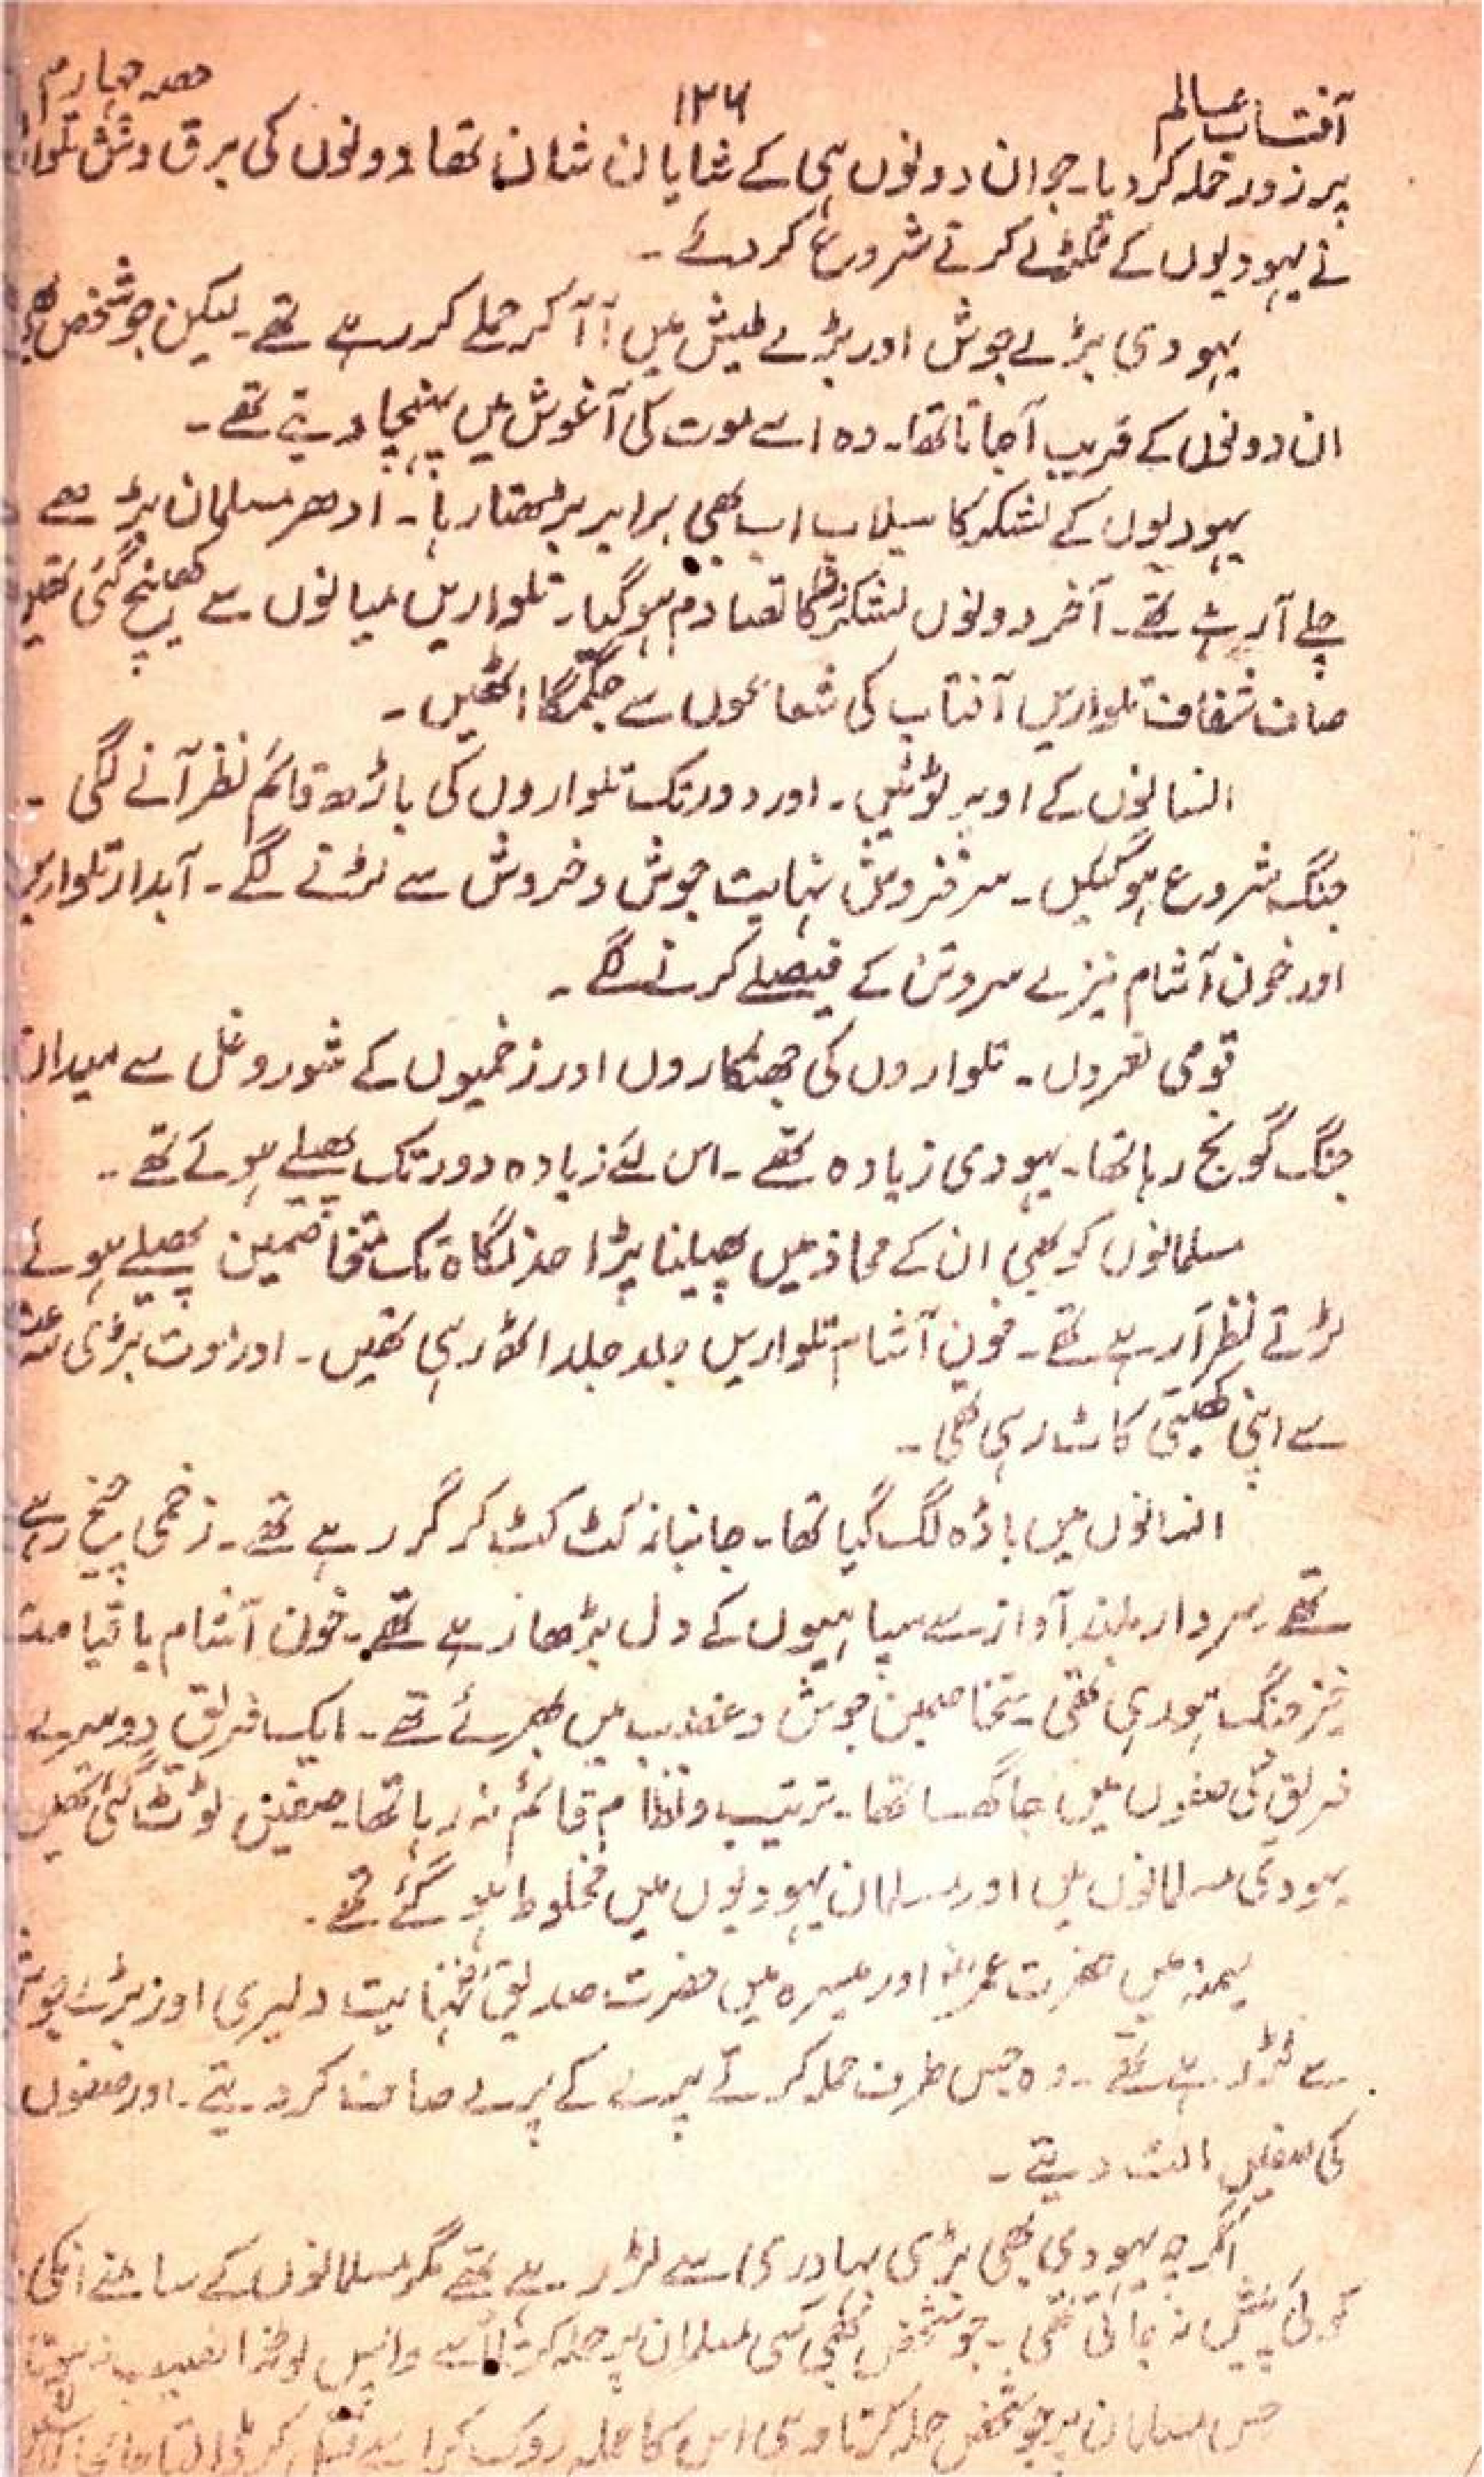 آفتاب عالم
۱۳۶
حصہ چہارم
پر زور حملہ کر دیا۔ جو ان دونوں ہی کے شایان شان تھا دونوں کی برق وش تلوا
نے یہودیوں کے ٹکڑے کرنے شروع کر دئے۔
یہودی بڑے جوش اور بڑے طیش میں آ آ کر حملے کر رہے تھے۔ لیکن جو شخص بھی
ان دونوں کے قریب آجاتا تھا۔ وہ اسے موت کی آغوش میں پہنچا دیتے تھے۔
یہودیوں کے لشکر کا سیلاب اب بھی برابر بڑھتا رہا۔ ادھر مسلمان بڑھے
چلے آرہے تھے۔ آخر دونوں لشکروں کا تصادم ہو گیا۔ تلواریں میانوں سے کھانچ گئی تھیں
صاف شفاف تلواریں آفتاب کی شعاعوں سے جگمگا اٹھیں۔
انسانوں کے اوپر ٹوٹیں۔ اور دور تک تلواروں کی باڑھ قائم نظر آنے لگی۔
جنگ شروع ہو گئیں۔ سرفروش نہایت جوش و خروش سے لڑنے لگے۔ آبدار تلواریں
اور خون آشام نیزے سروتن کے فیصلے کرنے لگے۔
قومی نعروں۔ تلواروں کی جھنکاروں اور زخمیوں کے شور و غل سے میدان
جنگ گونج رہا تھا۔ یہودی زیادہ تھے۔ اس لئے زیادہ دور تک پھیلے ہوئے تھے۔
مسلمانوں کو بھی ان کے محاذ میں پھیلنا پڑا حد نگاہ تک متخاصمین پھیلے ہوئے
لڑتے نظر آرہے تھے۔ خون آشام تلواریں جلد جلد اٹھ رہی تھیں۔ اور موت بڑی
سے اپنی کھیتی کاٹ رہی تھی۔
انسانوں میں باڑہ لگ گیا تھا۔ جانباز کٹ کٹ کر گر رہے تھے۔ زخمی چیخ رہے
تھے۔ سردار بلند آواز سے سپاہیوں کے دل بڑھا رہے تھے۔ خون آشام یا قیامت
خیز جنگ ہو رہی تھی۔ متخاصمین جوش و غضب میں بھرئے تھے۔ ایک فریق دوسرے
فریق کی صفوں میں جا گھسا تھا۔ ترتیب و نظام قائم نہ رہا تھا۔ صفیں ٹوٹ گئی تھیں
یہودی مسلمانوں میں اور مسلمان یہودیوں میں مخلوط ہو گئے تھے۔
میمنہ میں حضرت عمرؓ اور میسرہ میں حضرت صدیقؓ نہایت دلیری اور بڑے جوش
سے لڑ رہے تھے۔ وہ جس طرف حملہ کرتے پرے کے پرے صاف کر دیتے۔ اور صفوں
کی صفیں الٹ دیتے۔
اگرچہ یہودی بھی بڑی بہادری سے لڑ رہے تھے مگر مسلمانوں کے سامنے انکی
کوئی پیش نہ جاتی تھی۔ جو شخص بھی کسی مسلمان پر حملہ کرتا اسے واپس لوٹنا نصیب نہ ہوتا
جس مسلمان پر جو شخص حملہ کرتا وہی اس کا حملہ روک کر اسے قتل کر ڈالتا